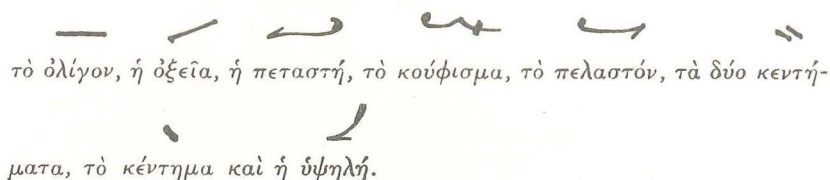 τὸ ὀλίγον, ἡ ὀξεῖα, ἡ πεταστή, τὸ κούφισμα, τὸ πελαστόν, τὰ δύο κεντή-
ματα, τὸ κέντημα καὶ ἡ ὑψηλή.